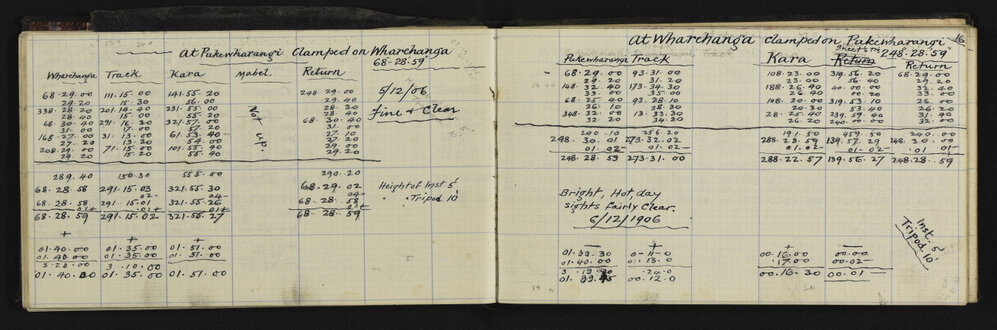 At Pukewharangi Clamped on Wharehanga
68·28·59"
Wharehanga Track Kara Mabel Return
68·29·00 111·15·00 141·55·20 248·29·00 5/12/06
29·20 15·30 56·00 29·40
338·28·20 201·14·40 231·55·00 28·30 Fine & Clear
28·40 15·00 55·20 28·40
31·00 17·00 57·20 31·00
27·20 13·30 54·00 27·20
208·29·00 71·15·00 101·55·40 29·00
29·20 15·20 55·40 29·20
Not up.
289·40 150·30 555·00 290·20
68·28·58 291·15·03 321·55·30 68·29·02 Height of Inst 5'
02- 04- 04- " " Tripod 10'
68·28·58 291·15·01 321·55·26 68·28·58
01+ 01+ 01+ 01+
68·28·59 291·15·02 321·55·27 68·28·59
+ + +
01·40·00 01·35·00 01·51·00
01·40·00 01·35·00 01·51·00
3·20·00 3·10·00
01·40·00 01·35·00 01·51·00
At Wharehanga clamped on Pukewharangi 16
248·28·59"
Pukewharangi Track Kara Return Return
68·29·00 93·31·00 108·23·00 319·56·20 68·29·00
29·20 31·20 23·00 56·40 29·20
168·32·40 173·34·30 188·26·40 40·00
33·00 35·00 40·20
68·25·40 93·28·10 108·20·00 319·53·10 26·00
26·10 28·30 20·30 53·40 26·20
348·32·00 13·33·30 28·25·40 239·59·40 31·40
32·20 34·20 26·20 240·00·00 32·00
240·10 256·20 191·50 459·50 240·00
248·30·01 273·32·02 288·23·59 139·57·29 248·30·00
01·02- 01·02- 01·02- 01·02- 01·01-
248·28·59 273·31·00 288·22·57 139·56·27 248·28·59
Bright, Hot, day
sights fairly Clear.
6/12/1906
Inst. 5'
Tripod 10'
- + - -
01·39·30 0-11-0 00·16·00 00·00-
01·40·00 0-13·0 ·17·00 00·02-
·24·0
00·12·0 00·16·30 00·01-